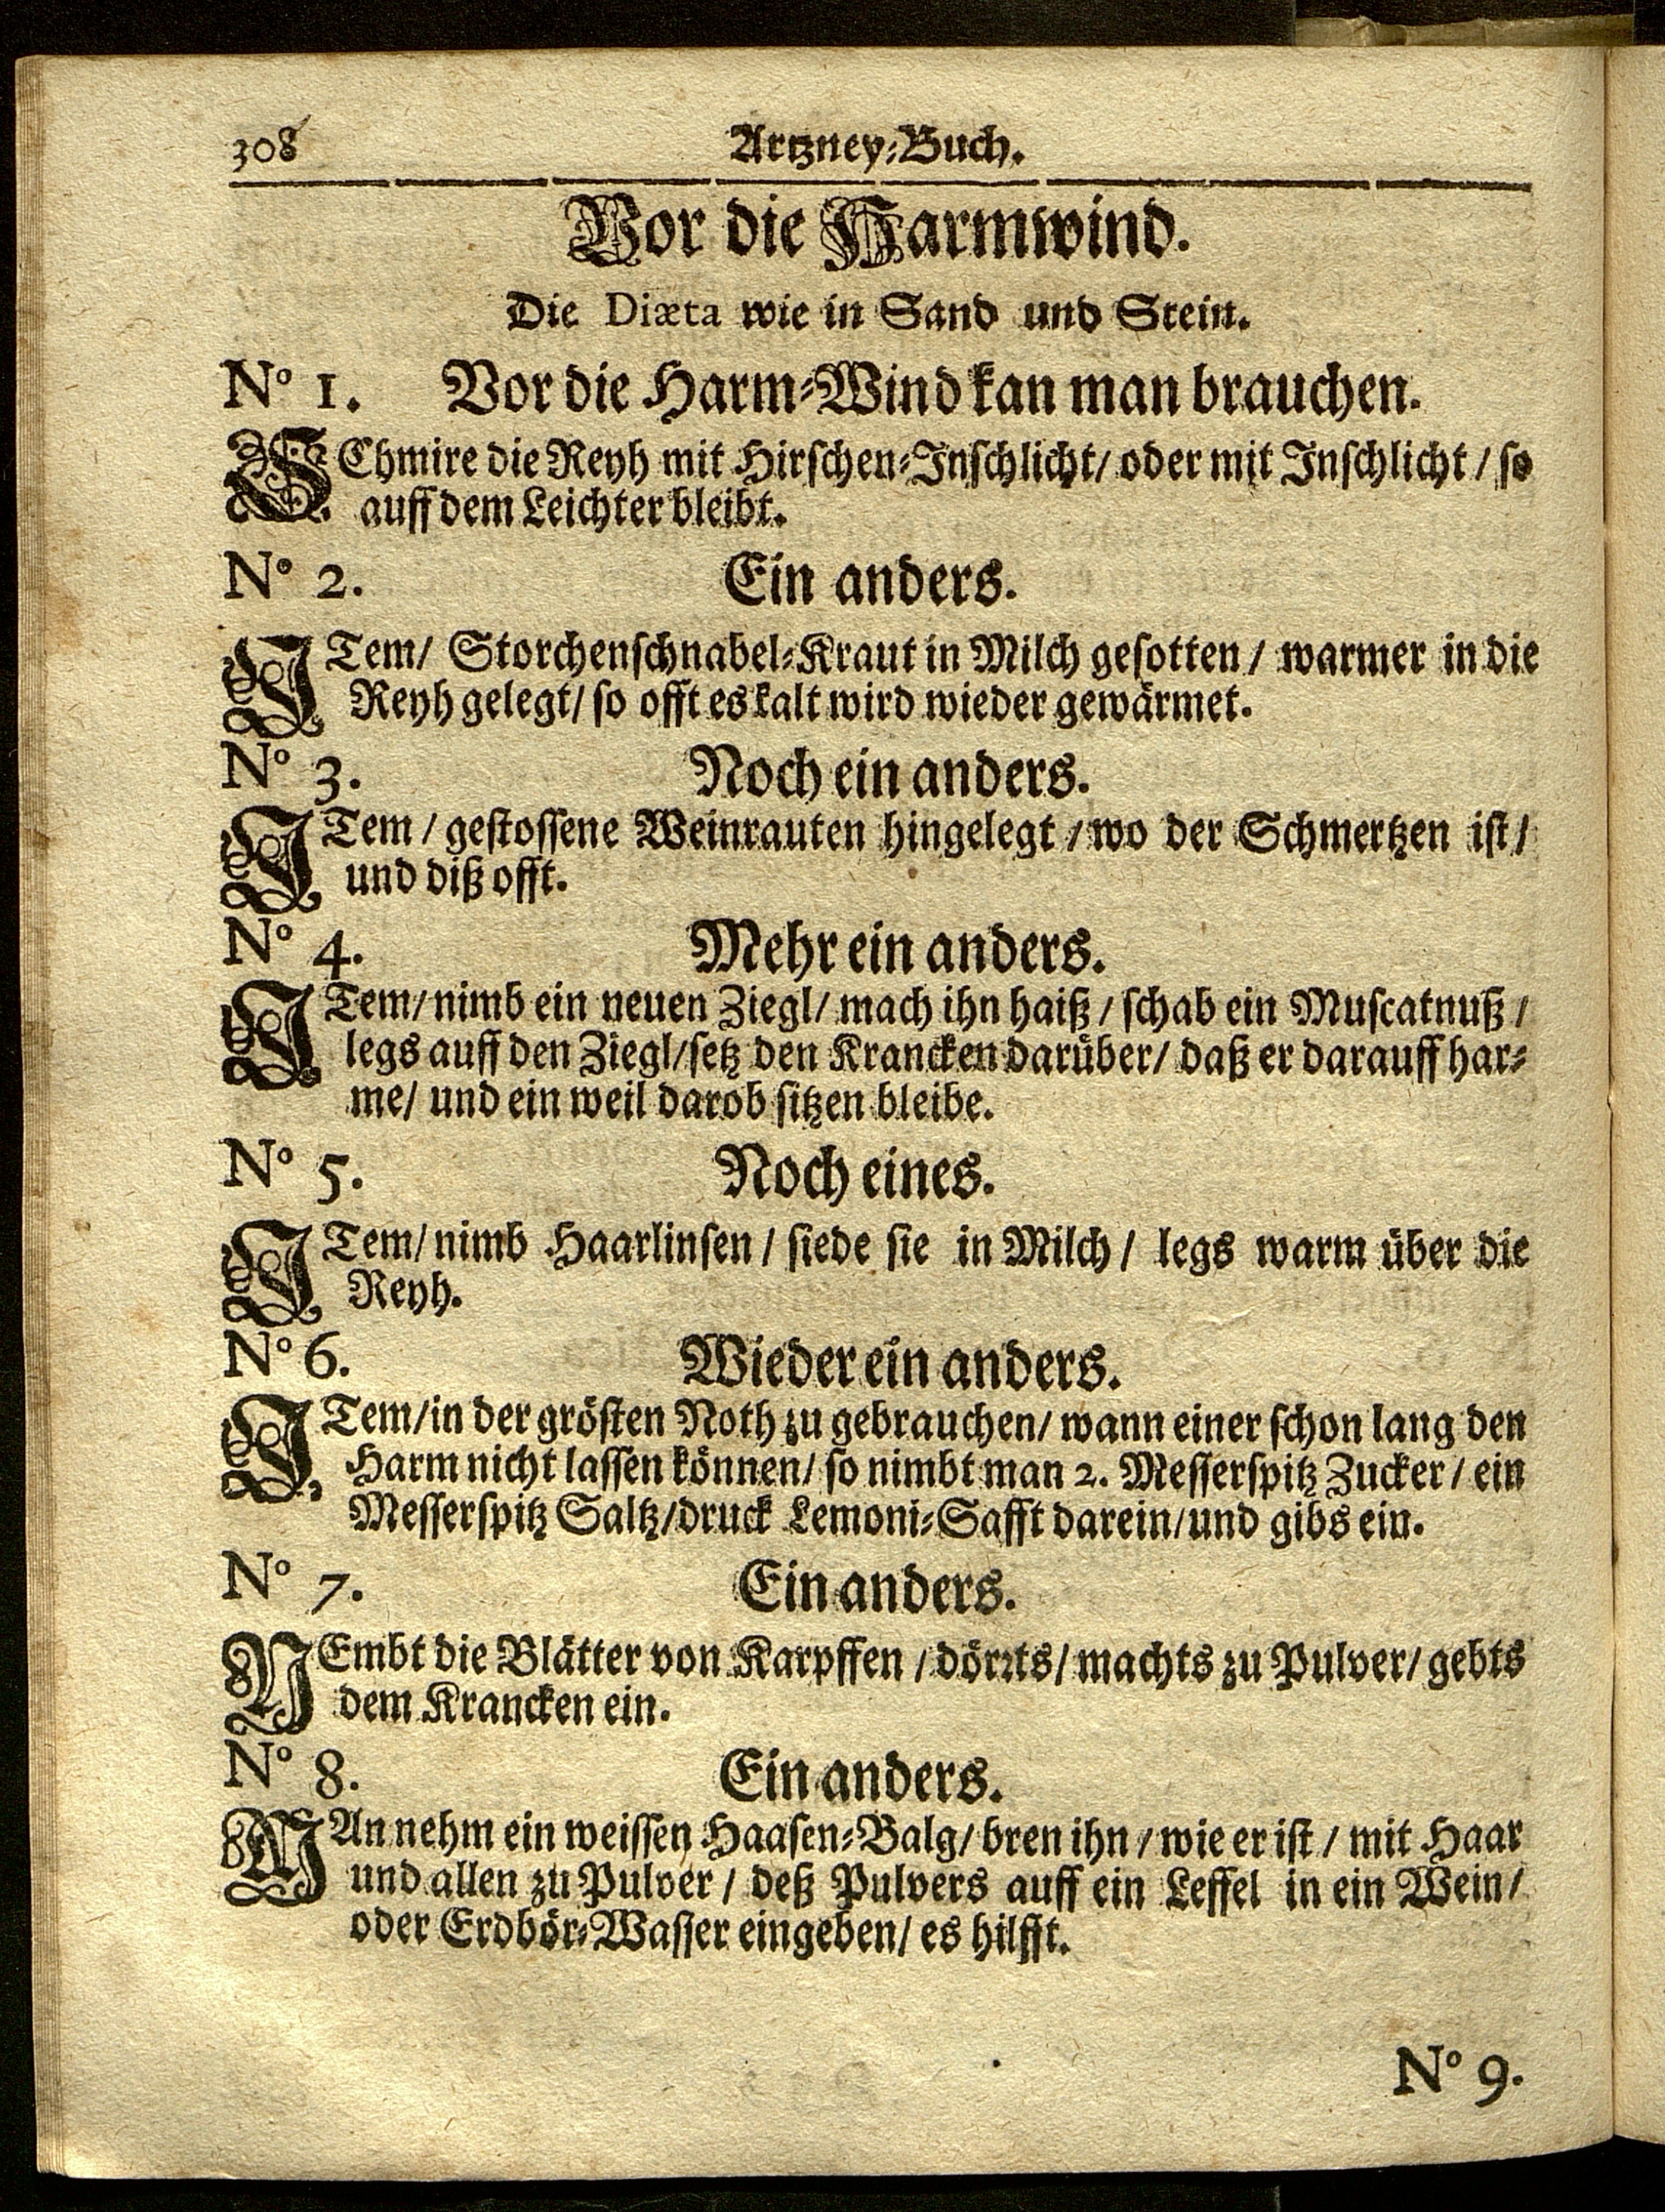 308 Artzney-Buch.
Vor die Harmwind.
Die Diæta wie in Sand und Stein.
N° 1. Vor die Harm-Wind kan man brauchen.
SChmire die Reyh mit Hirschen-Inschlicht/ oder mit Inschlicht / so
auff dem Leichter bleibt.
N° 2. Ein anders.
ITem/ Storchenschnabel-Kraut in Milch gesotten / warmer in die
Reyh gelegt/ so offt es kalt wird wieder gewärmet.
N° 3. Noch ein anders.
ITem / gestossene Weinrauten hingelegt / wo der Schmertzen ist /
und diß offt.
N° 4. Mehr ein anders.
ITem/ nimb ein neuen Ziegl/ mach ihn haiß / schab ein Muscatnuß /
legs auff den Ziegl/ setz den Krancken darüber/ daß er darauff har-
me/ und ein weil darob sitzen bleibe.
N° 5. Noch eines.
ITem/ nimb Haarlinsen / siede sie in Milch / legs warm über die
Reyh.
N° 6. Wieder ein anders.
ITem/ in der grösten Noth zu gebrauchen/ wann einer schon lang den
Harm nicht lassen können/ so nimbt man 2. Messerspitz Zucker / ein
Messerspitz Saltz/ druck Lemoni-Safft darein/ und gibs ein.
N° 7. Ein anders.
NEmbt die Blätter von Karpffen / dörrts/ machts zu Pulver/ gebts
dem Krancken ein.
N° 8. Ein anders.
MAn nehm ein weissen Haasen-Balg/ bren ihn / wie er ist / mit Haar
und allen zu Pulver / deß Pulvers auff ein Leffel in ein Wein/
oder Erdbör-Wasser eingeben/ es hilfft.
N° 9.